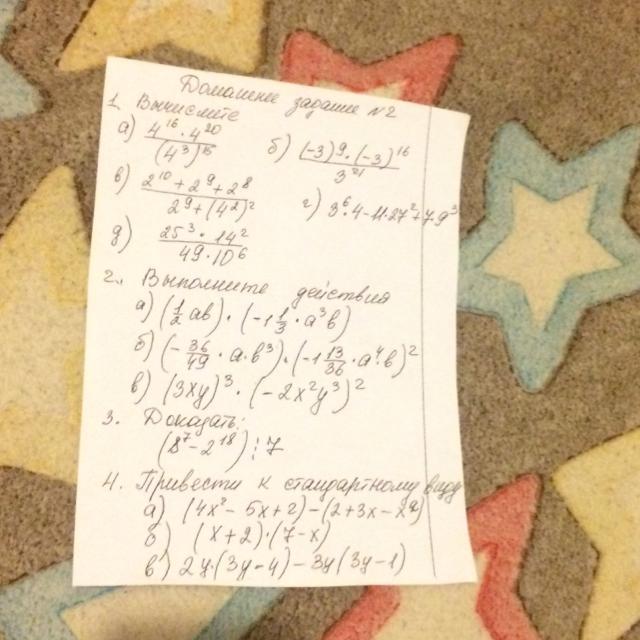 Домашнее задание №2
1. Вычислите
а) 4^16 · 4^20 / (4^3) б) (-3)^9 · (-3)^16 / 3^21
в) 2^10 + 2^9 + 2^8 / 2^9 + (4^2)^2 г) 3^6 · 4 - 11 · 27^2 + 7 · 9^3
д) 25^3 · 14^2 / 49 · 10^6
2. Выполните действия
а) (1/2 ab) · (-1 1/3 · a^3 b)
б) (-36/49 · a · b^3) · (-1 13/36 · a^4 b)^2
в) (3xy)^3 · (-2x^2y^3)^2
3. Доказать:
(8^7 - 2^18) ⋮ 7
4. Привести к стандартному виду
а) (4x^2 - 5x + 2) - (2 + 3x -
б) (x + 2) · (7 - x)
в) 2y · (3y - 4) - 3y (3y - 1)